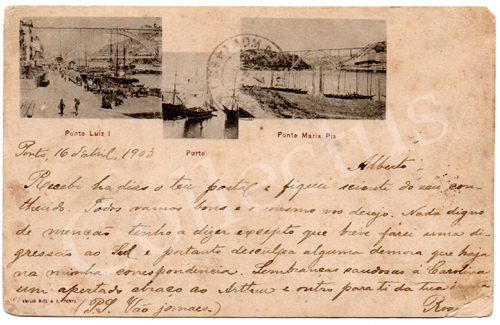 Ponte Luiz I
Ponte Maria Pia
Porto
Porto, 16 d'abril, 1903
Alberto
Recebi ha dias o teu postal e fiquei sciente do seu con-
theudo. Todos vamos bons e o mesmo vos desejo. Nada digno
de menção tenho a dizer excepto que breve farei uma di-
gressão ao Sul e portanto desculpa alguma demora que haja
na minha correspondencia. Lembranças saudosas á Carolina
um apertado abraço ao Arthur e outro para ti da tua
(P.S. Vão jornaes)
EMILIO BIEL & C. PORTO
Collectus